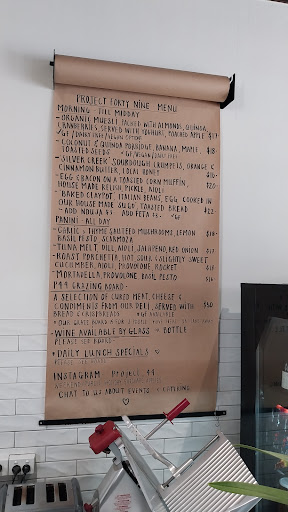 PROJECT FORTY NINE MENU
MORNING - TILL MIDDAY
- ORGANIC MUESLI, PACKED WITH ALMONDS, QUINOA,
CRANBERRIES, SERVED WITH YOGHURT, POACHED APPLE $17
- COCONUT & QUINOA PORRIDGE, BANANA, MAPLE, $18
TOASTED SEEDS
- SILVER CREEK SOURDOUGH CRUMPETS, ORANGE &
CINNAMON BUTTER, LOCAL HONEY
- EGG & BACON ON A TOASTED CORN MUFFIN,
HOUSE MADE RELISH, PICKLE, AIOLI $20
- BAKED CLAYPOT, ITALIAN BEANS, EGG COOKED IN
OUR HOUSE MADE SUGO, TOASTED BREAD $22
- ADD NDUJA $3 - ADD FETA $3 - GF
PANINI - ALL DAY
- GARLIC & THYME SAUTEED MUSHROOMS, LEMON
BASIL PESTO, SCARMOZA
- TUNA MELT, DILL AIOLI, JALAPENO, RED ONION $17
- ROAST PORCHETTA, HOT SOUR & SLIGHTLY SWEET
CUCUMBER, AIOLI, PROVOLONE, ROCKET
- MORTADELLA, PROVOLONE, BASIL PESTO $16
P49 GRAZING BOARD -
A SELECTION OF CURED MEAT, CHEESE &
CONDIMENTS FROM OUR DELI, SERVED WITH $50
BREAD & CRISPBREADS
- WINE AVAILABLE BY GLASS & BOTTLE
PLEASE SEE BOARD
- DAILY LUNCH SPECIALS
INSTAGRAM PROJECT_49
CHAT TO US ABOUT EVENTS & CATERING